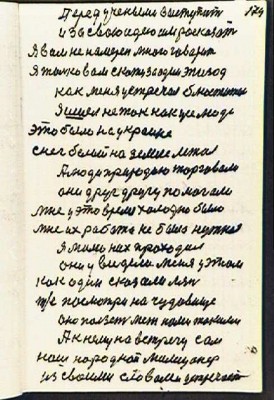 174
Перед учеными выступит
и за свою идею им расказат
Я вам не намерен много говарит
Я только вам скажу за один эпизод
как меня устречал блюститель
Я ишел не так как усе люди
это было на украине
снег белый на земле лежал
А люди природою торговали
они друг другу помогали
мне у это время холодно было
мне их работа не была нужная
я мимо них проходил
они увидели меня у этом
как один сказали
посмотри на чудовище
оно ползет меж нами такими
А к нему на встречу сам
наш народной милицонер
из своими словами устречает